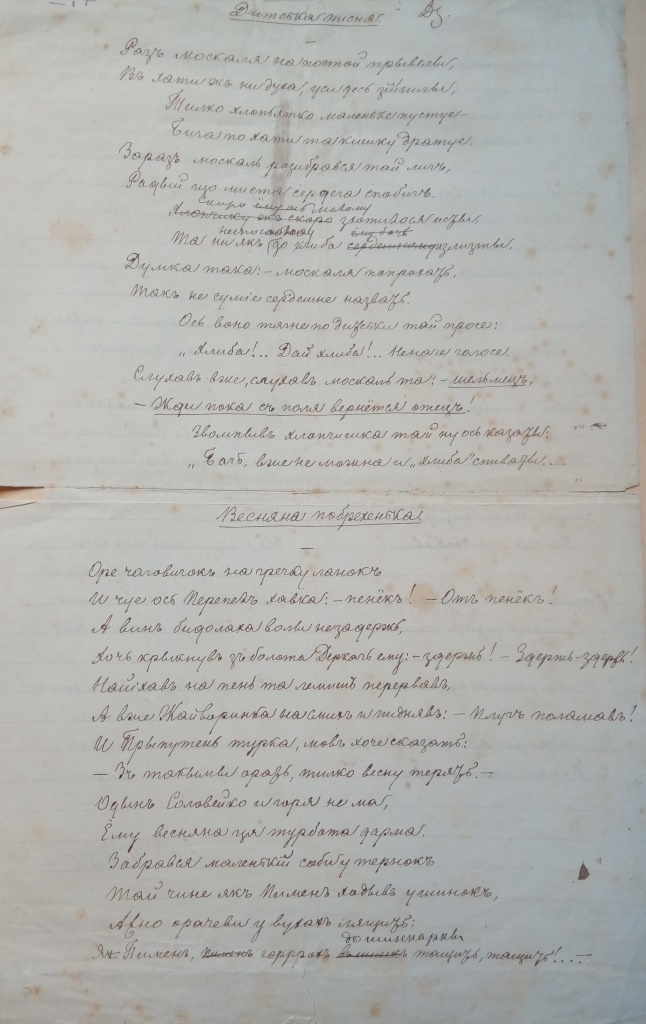 Дитська писня.
Разъ москаля на постой прывелы,
Въ хати жъ ни духа, уси десь зійшлы,
Тилко хлопьятко маленьке пустуе –
Бига по хати та кишку дратуе.
Заразъ москаль розибрався тай личь,
Радый що миста сердега спобичъ.
Скоро ёму
Хлопчику жъ скоро зхотилося исты,
Та ни якъ до хлиба сердешному злизты.
Думка така: – москаля попрохать,
Такъ не суміе сердешне назвать.
Ось воно тягне по дитськи тай просе:
„Хлиба!.. Дай хлиба!.. Неначе голосе.
Слухавъ вже, слухавъ москаль та: – шельмецъ,
– Жди пока съ поля вернётся отецъ!
Звомпывъ хлопчишка тай ну ось казать:
„Бачъ, вже не можна и „хлиба" спивать!..
Весняна побрехенька.
Оре чоловичокъ на гречку ланокъ
И чуе ось Перепелъ хавка: – пенёкъ! – Отъ пенёкъ!
А винъ бидолаха волы незадержь,
Хочь крыкнувъ зъ болота Деркачь ёму: – здержь! – Здержь-здержь!
Найіхавъ на пень та лемишъ перервавъ,
А вже Жайворинка на смихъ и пиднявъ: – Плугъ поламавъ!
И Прыпутень турка, мовъ хоче сказать:
– Зъ такымы орать, тилко весну терять. –
Одынъ Соловейко и горя не ма,
Ёму весняна ця турбота дарма.
Забрався маленькій соби у тернокъ
Тай чине якъ Пименъ ходывъ у шинокъ,
Ажно орачеви у вухахъ лящить:
до шинкаркы
Якъ Пименъ, Пименъ горррохъ въ шинкъ тащить, тащить!..